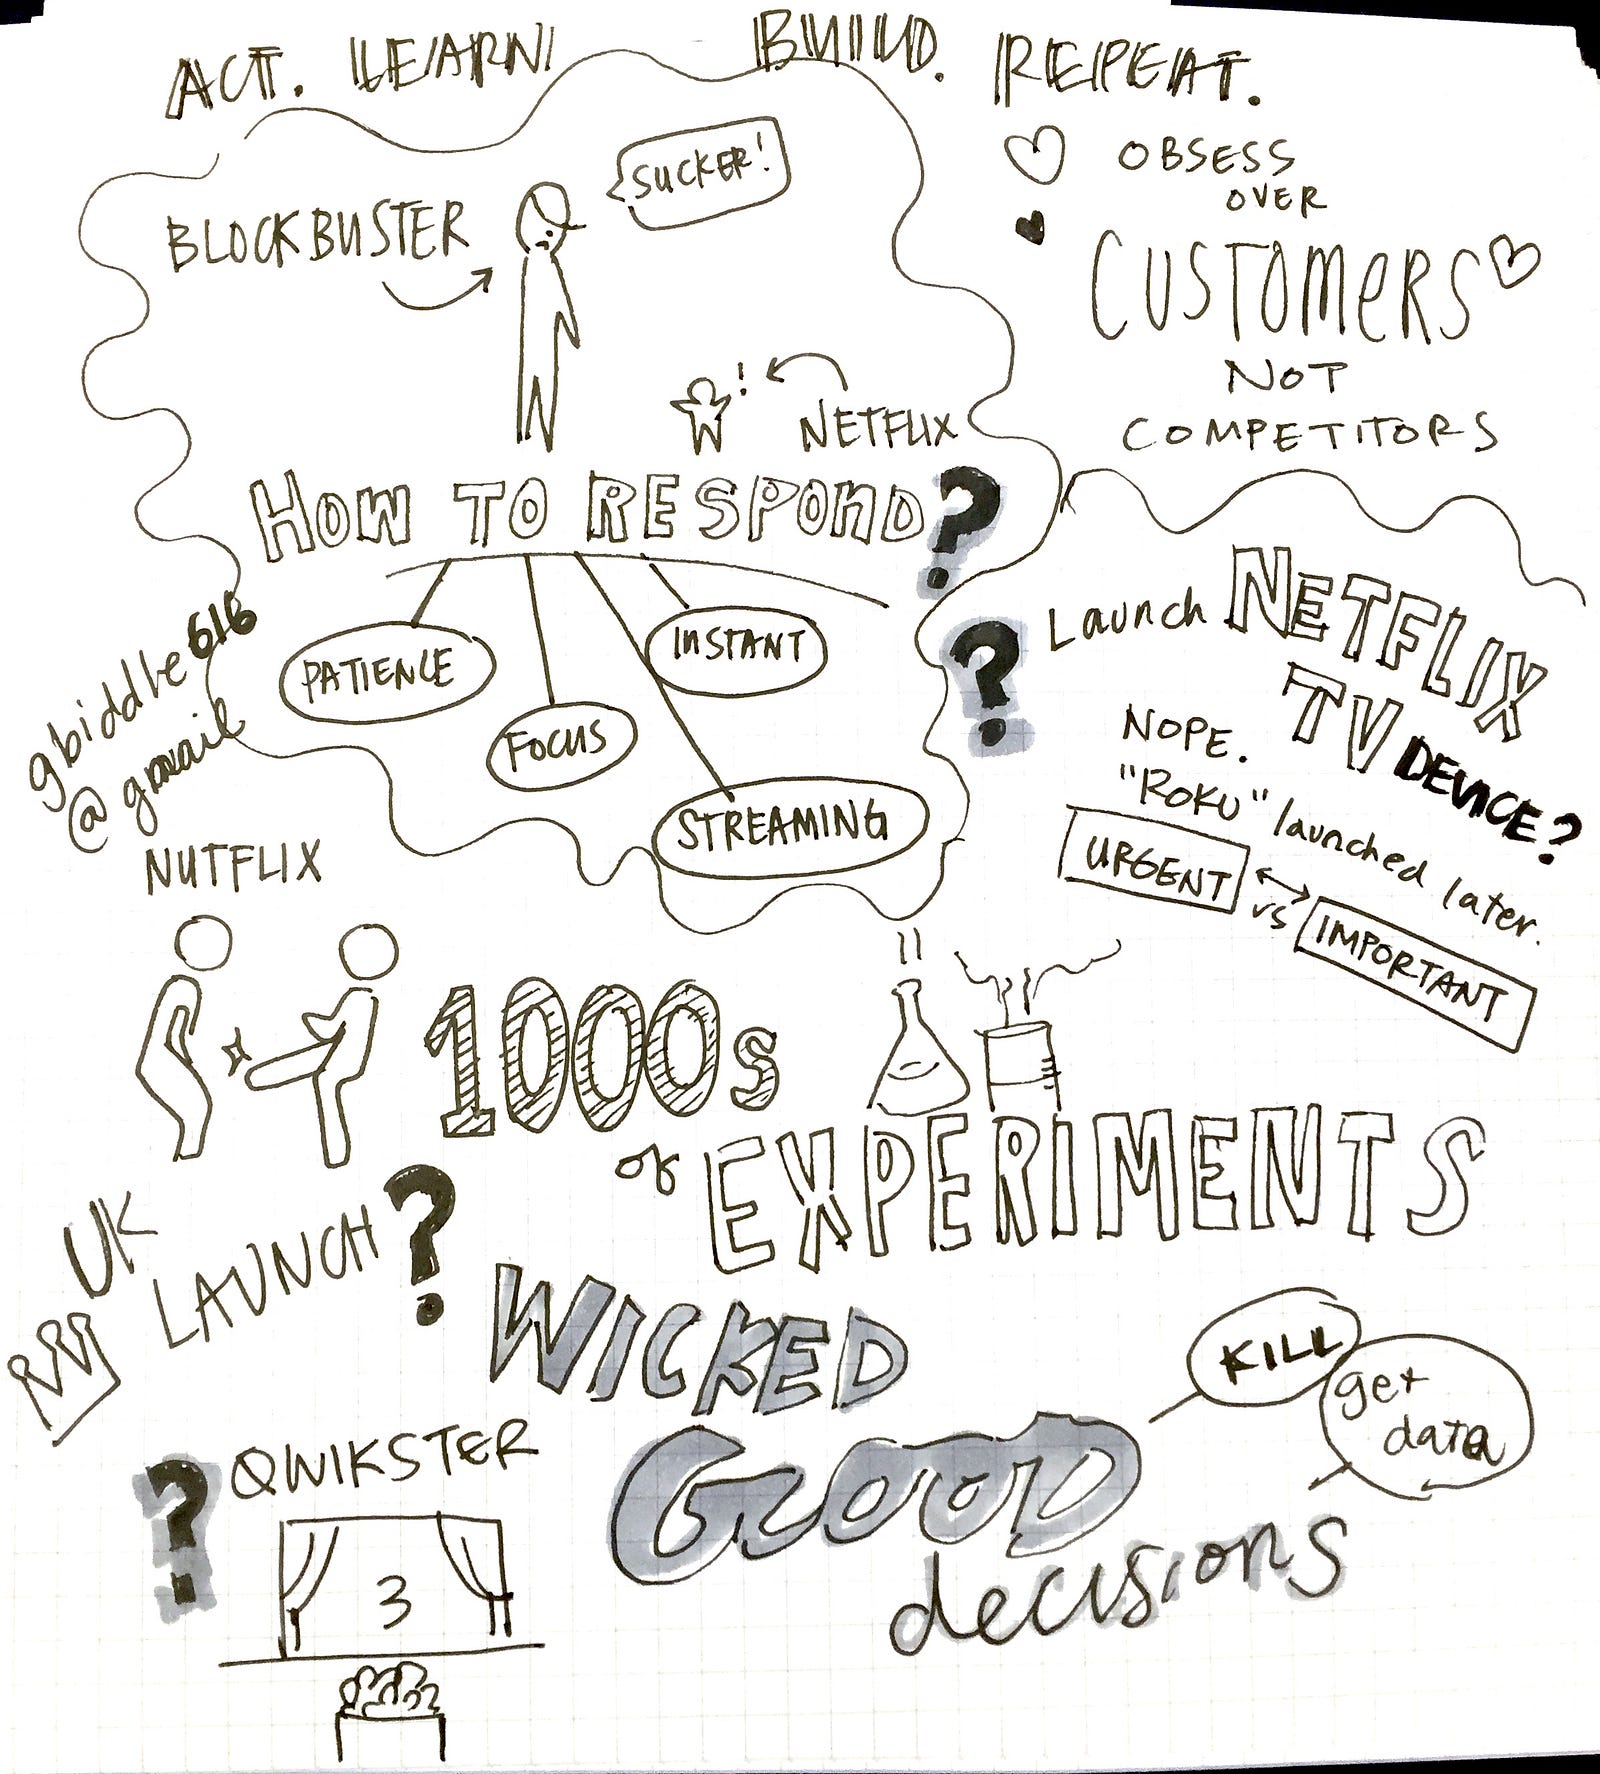 ACT. LEARN BUILD. REPEAT.
SUCKER!
BLOCKBUSTER
! NETFLIX
OBSESS
OVER
CUSTOMERS
NOT
COMPETITORS
HOW TO RESPOND?
PATIENCE
INSTANT
FOCUS
STREAMING
gbiddle616
@gmail
? Launch NETFLIX
TV DEVICE?
NOPE.
"ROKU" launched later.
URGENT
vs
IMPORTANT
NUTFLIX
1000s
of EXPERIMENTS
UK
LAUNCH?
WICKED
GOOD
decisions
KILL
get
data
? QWIKSTER
3